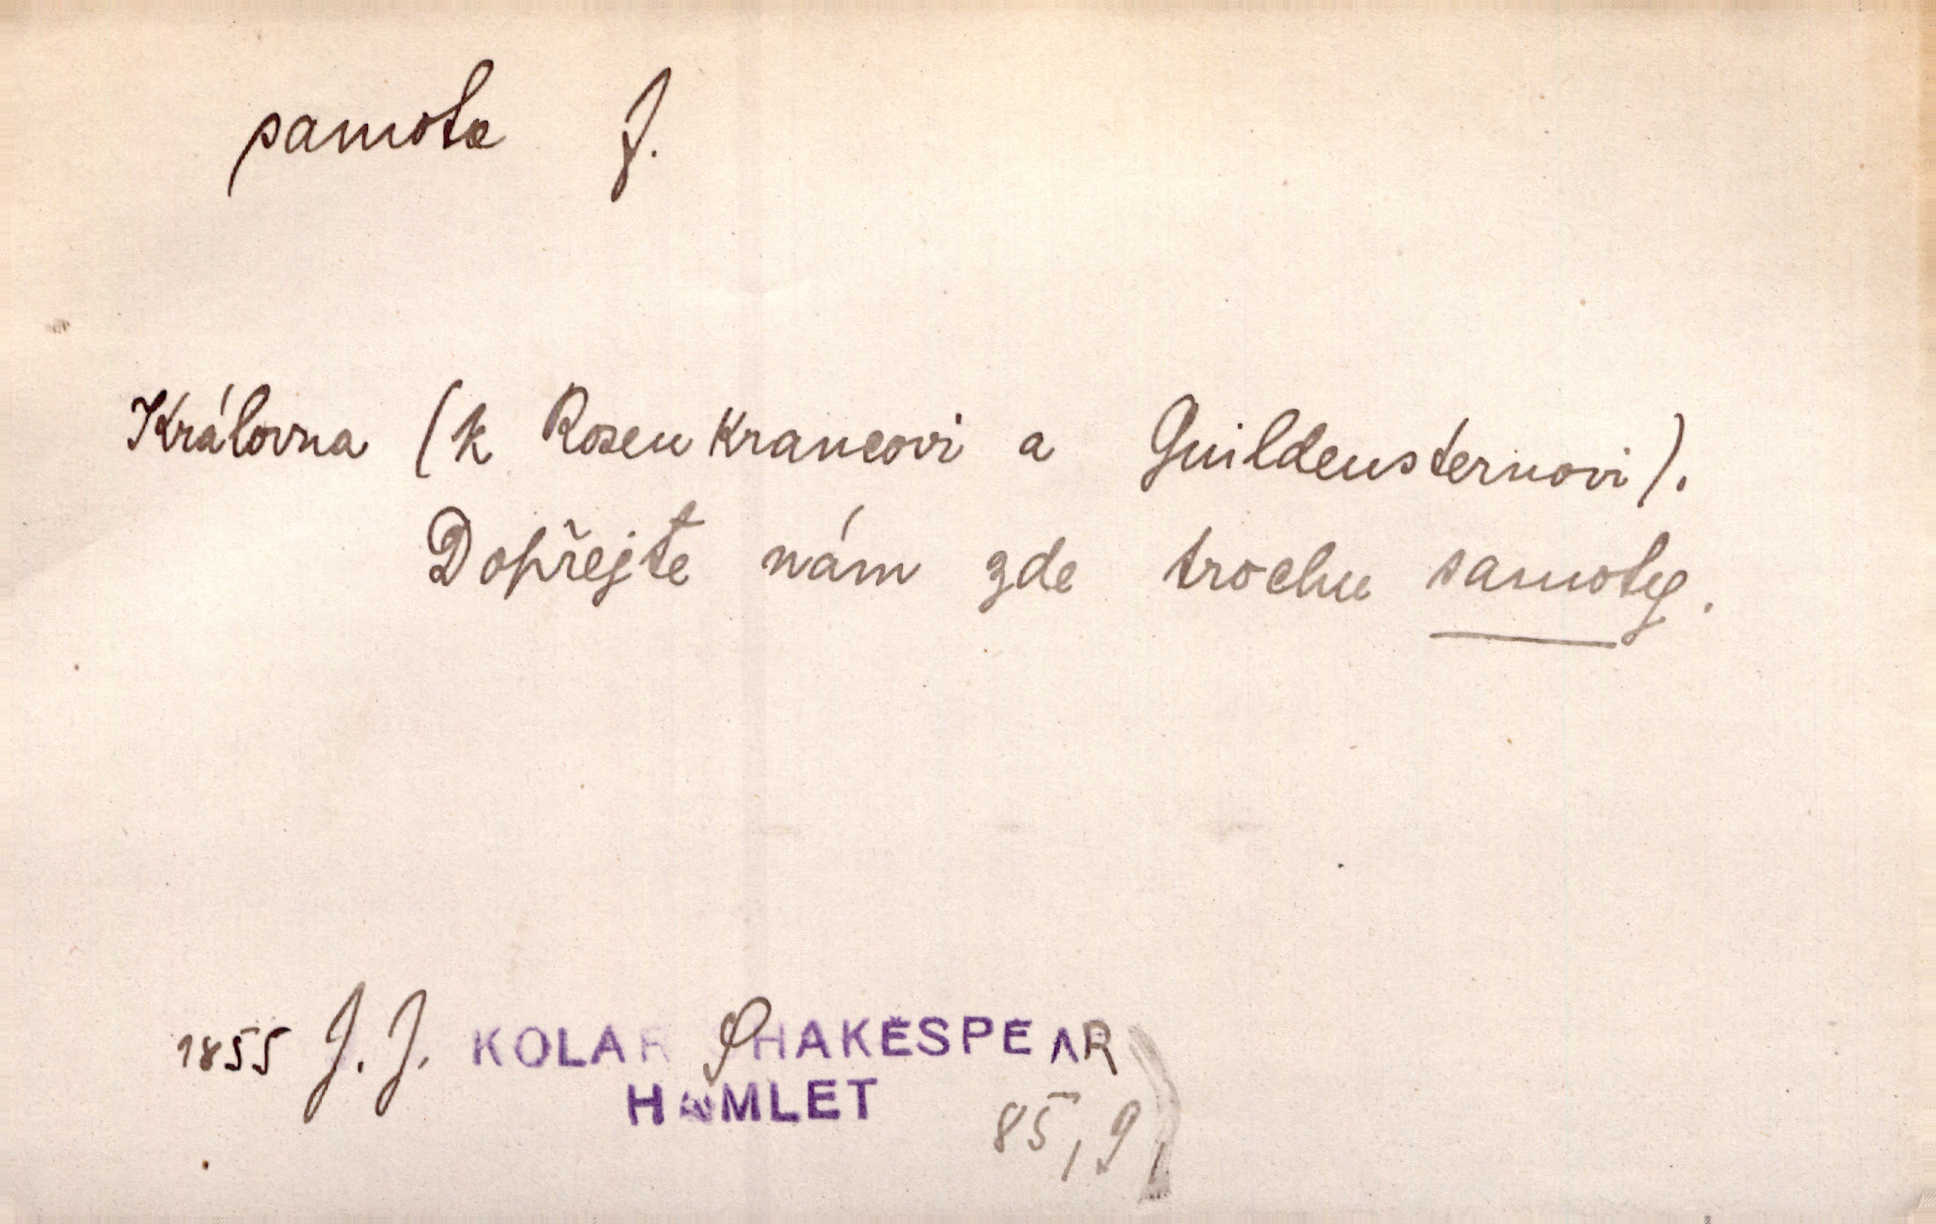 samota f.
Královna (k Rosenkrancovi a Guildensternovi).
Dopřejte nám zde trochu samoty.
1855 J. J. KOLAR SHAKESPEAR
HAMLET
85, 9